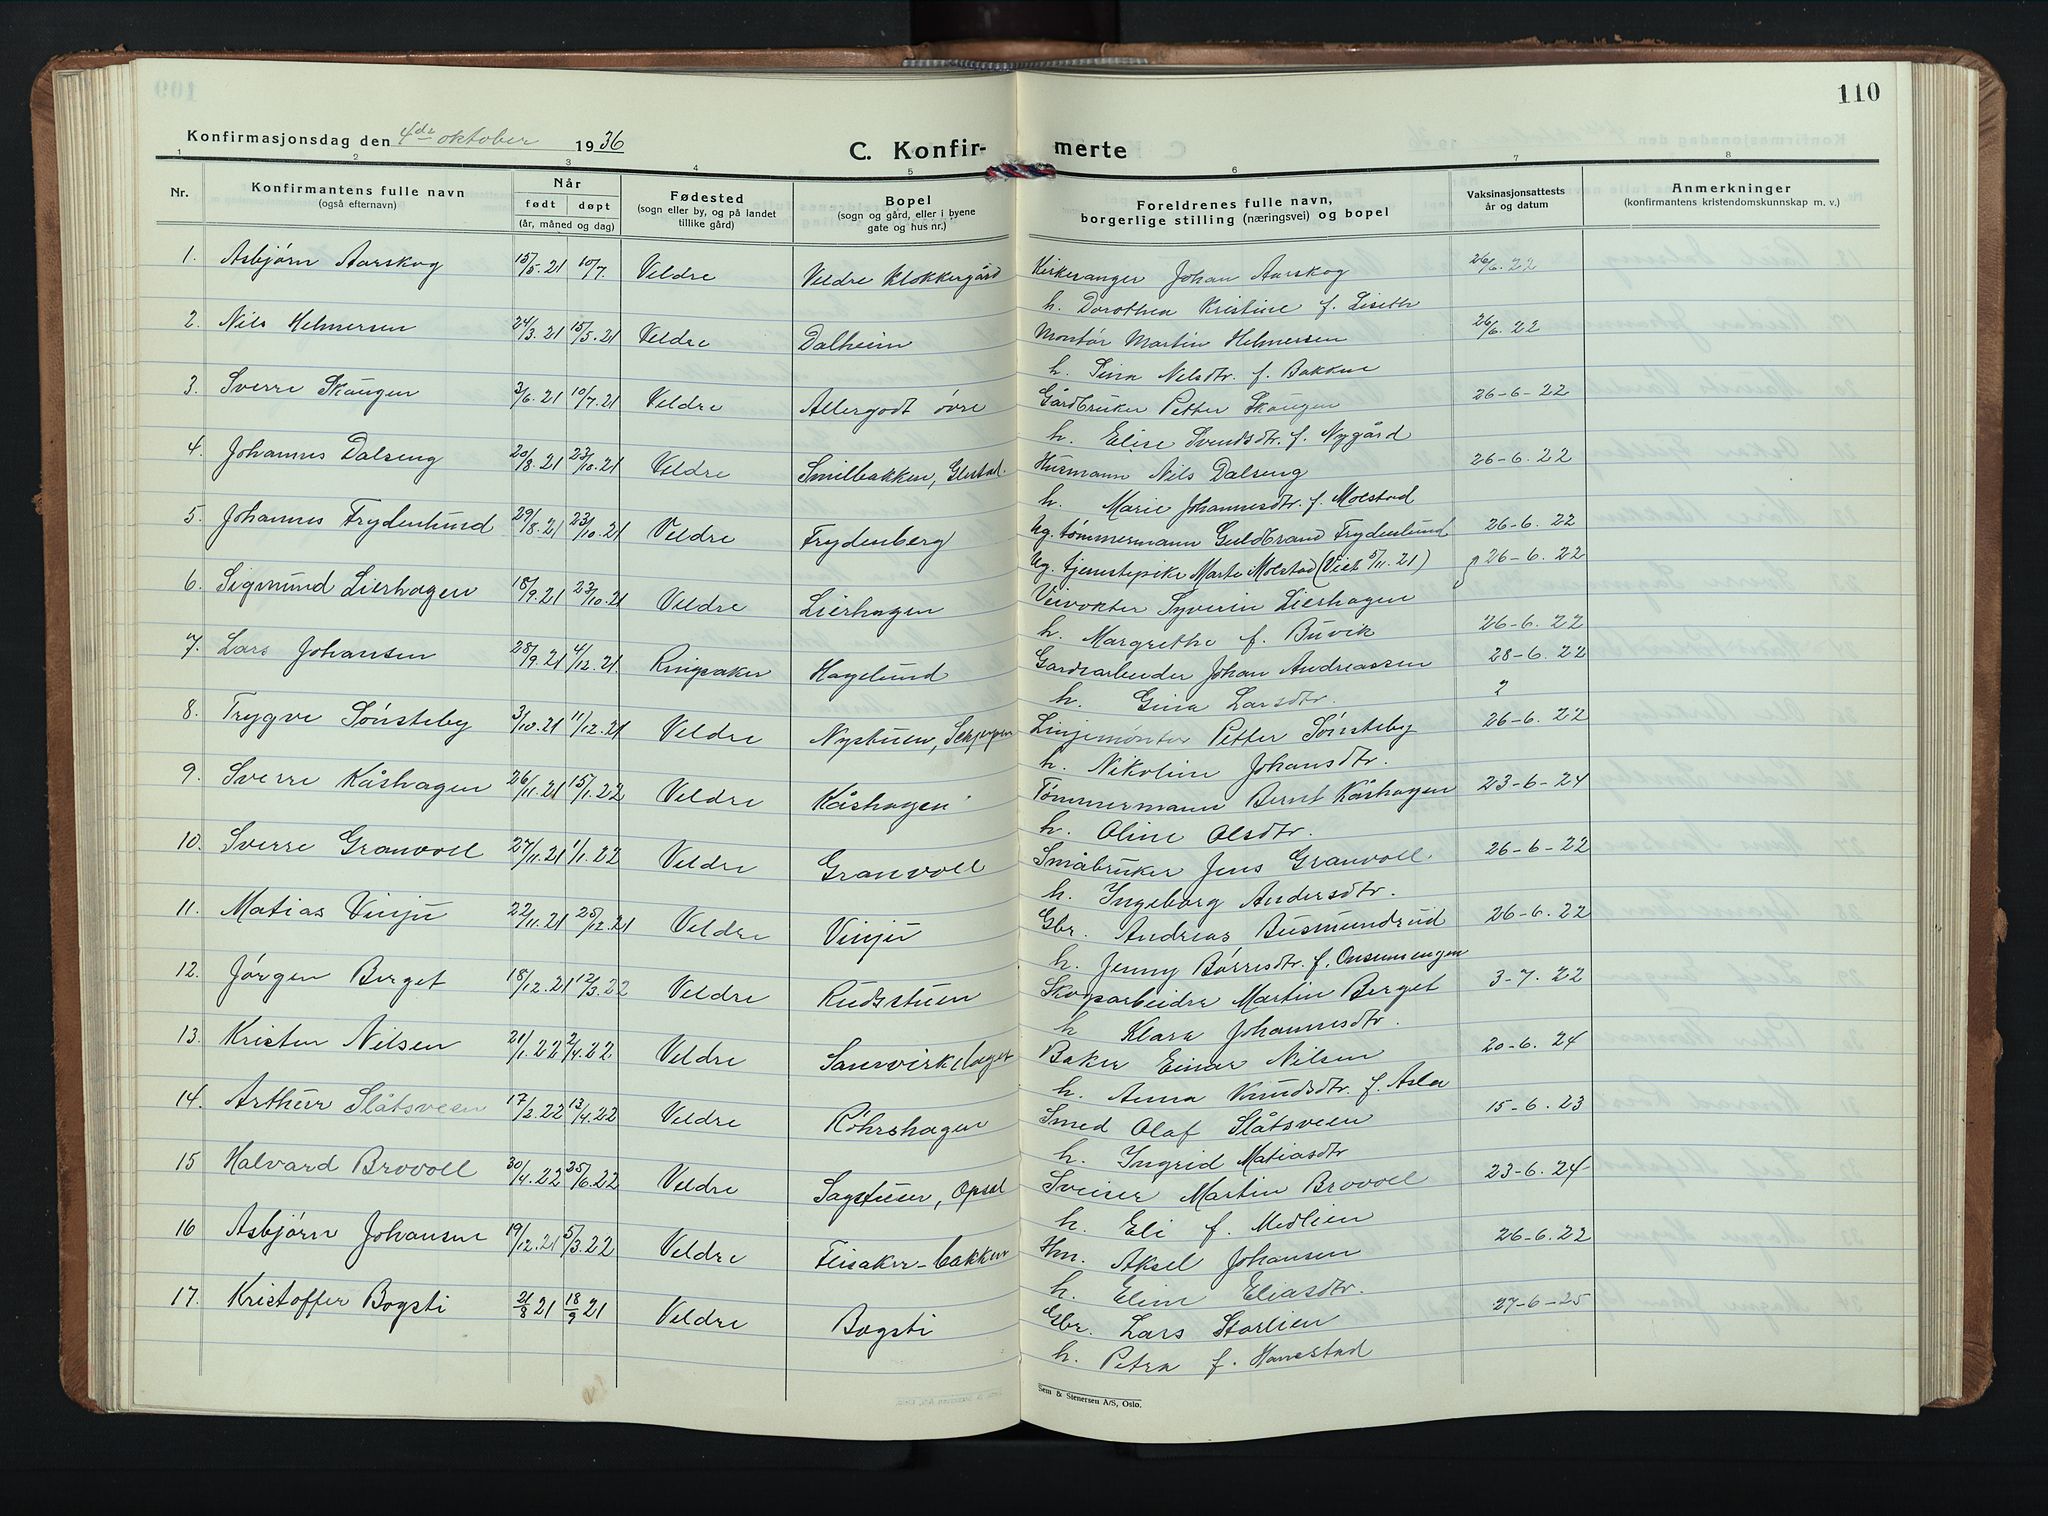 110
Konfirmasjonsdag den 4de oktober 1936
C. Konfir- merte
1 2 3 4 5 6 7 8
Nr. Konfirmantens fulle navn (også efternavn) Når født døpt (år, måned og dag) Fødested (sogn eller by, og på landet tillike gård) Bopel (sogn og gård, eller i byene gate og hus nr.) Foreldrenes fulle navn, borgerlige stilling (næringsvei) og bopel Vaksinasjonsattests år og datum Anmerkninger (konfirmantens kristendomskunnskap m. v.)
1. Asbjørn Aarskog 15/5.21 10/7. Veldre Veldre Klokkergård Kirkesanger Johan Aarskog 26/6.22
h. Dorothea Kristine f. Liseth
2. Nils Helmersen 24/3.21 15/5.21 Veldre Dalheim Montør Martin Helmersen 26/6.22
h. Sina Nilsdtr. f. Bakken
3. Sverre Skaugen 3/6.21 10/7.21 Veldre Allergodt øvre Gårdbruker Petter Skaugen 26-6-22
h. Elise Svendsdtr. f. Nygård
4. Johannes Dalseng 20/8.21 23/10.21 Veldre Smilbakken, Glestad. Husmann Nils Dalseng 26-6.22
h. Marie Johannesdtr. f. Molstad
5. Johannes Frydenlund 29/8.21 23/10.21 Veldre Frydenberg Ug. tømmermann Guldbrand Frydenlund 26-6.22
Ug. tjenestepike Marte Molstad (Viet 5/11.21) 26-6.22
6. Sigmund Lierhagen 18/9.21 23/10.21 Veldre Lierhagen Veivokter Syverin Lierhagen
h. Margrethe f. Buvik 26-6.22
7. Lars Johansen 28/9.21 4/12.21 Ringsaker Hagelund Gardsarbeider Johan Andreassen 28-6.22
h. Gina Larsdtr. ?
8. Trygve Sønsteby 3/10.21 11/12.21 Veldre Nystuen, Linjemontør Petter Sønsteby 26-6.22
h. Nikoline Johansdtr.
9. Sverre Kåshagen 26/11.21 15/1.22 Veldre Kåshagen Tømmermann Bernt Kåshagen 23-6-24
h. Oline Olsdtr.
10. Sverre Granvoll 27/11.21 1/1.22 Veldre Granvoll Småbruker Jens Granvoll. 26-6-22
h. Ingeborg Andersdtr.
11. Matias Vinju 22/11.21 25/12.21 Veldre Vinju Gbr. Andreas Ausmundrud 26-6.22
h. Jenny Børresdtr. f. Onsumsengen
12. Jørgen Berget 18/12.21 12/3.22 Veldre Rudsstuen Skogsarbeider Martin Berget 3-7.22
h Klara Johannesdtr.
13. Kristen Nilsen 21/1.22 2/4.22 Veldre Samvirkelaget Baker Einar Nilsen 20-6.24
h. Anna Knudsdtr. f. Asla
14. Arthur Slåtsveen 17/2.22 13/4.22 Veldre Røhrshagen Smed Olaf Slåtsveen 15-6.23
h. Ingrid Matiasdtr
15 Halvard Brovoll 30/4.22 25/6.22 Veldre Sagstuen, Opsal Sveiser Martin Brovoll 23-6.24-
h. Eli f. Medlien
16 Asbjørn Johansen 19/12.21 5/3.22 Veldre Feisaker-bakken Hm. Aksel Johansen 26-6.22
h. Eline Eliasdtr.
17. Kristoffer Bogsti 21/8 21 18/9 21 Veldre Bogsti Gbr. Lars Storlien 27-6-25
h. Petra f. Hanestad
Sem & Stenersen A/S, Oslo.